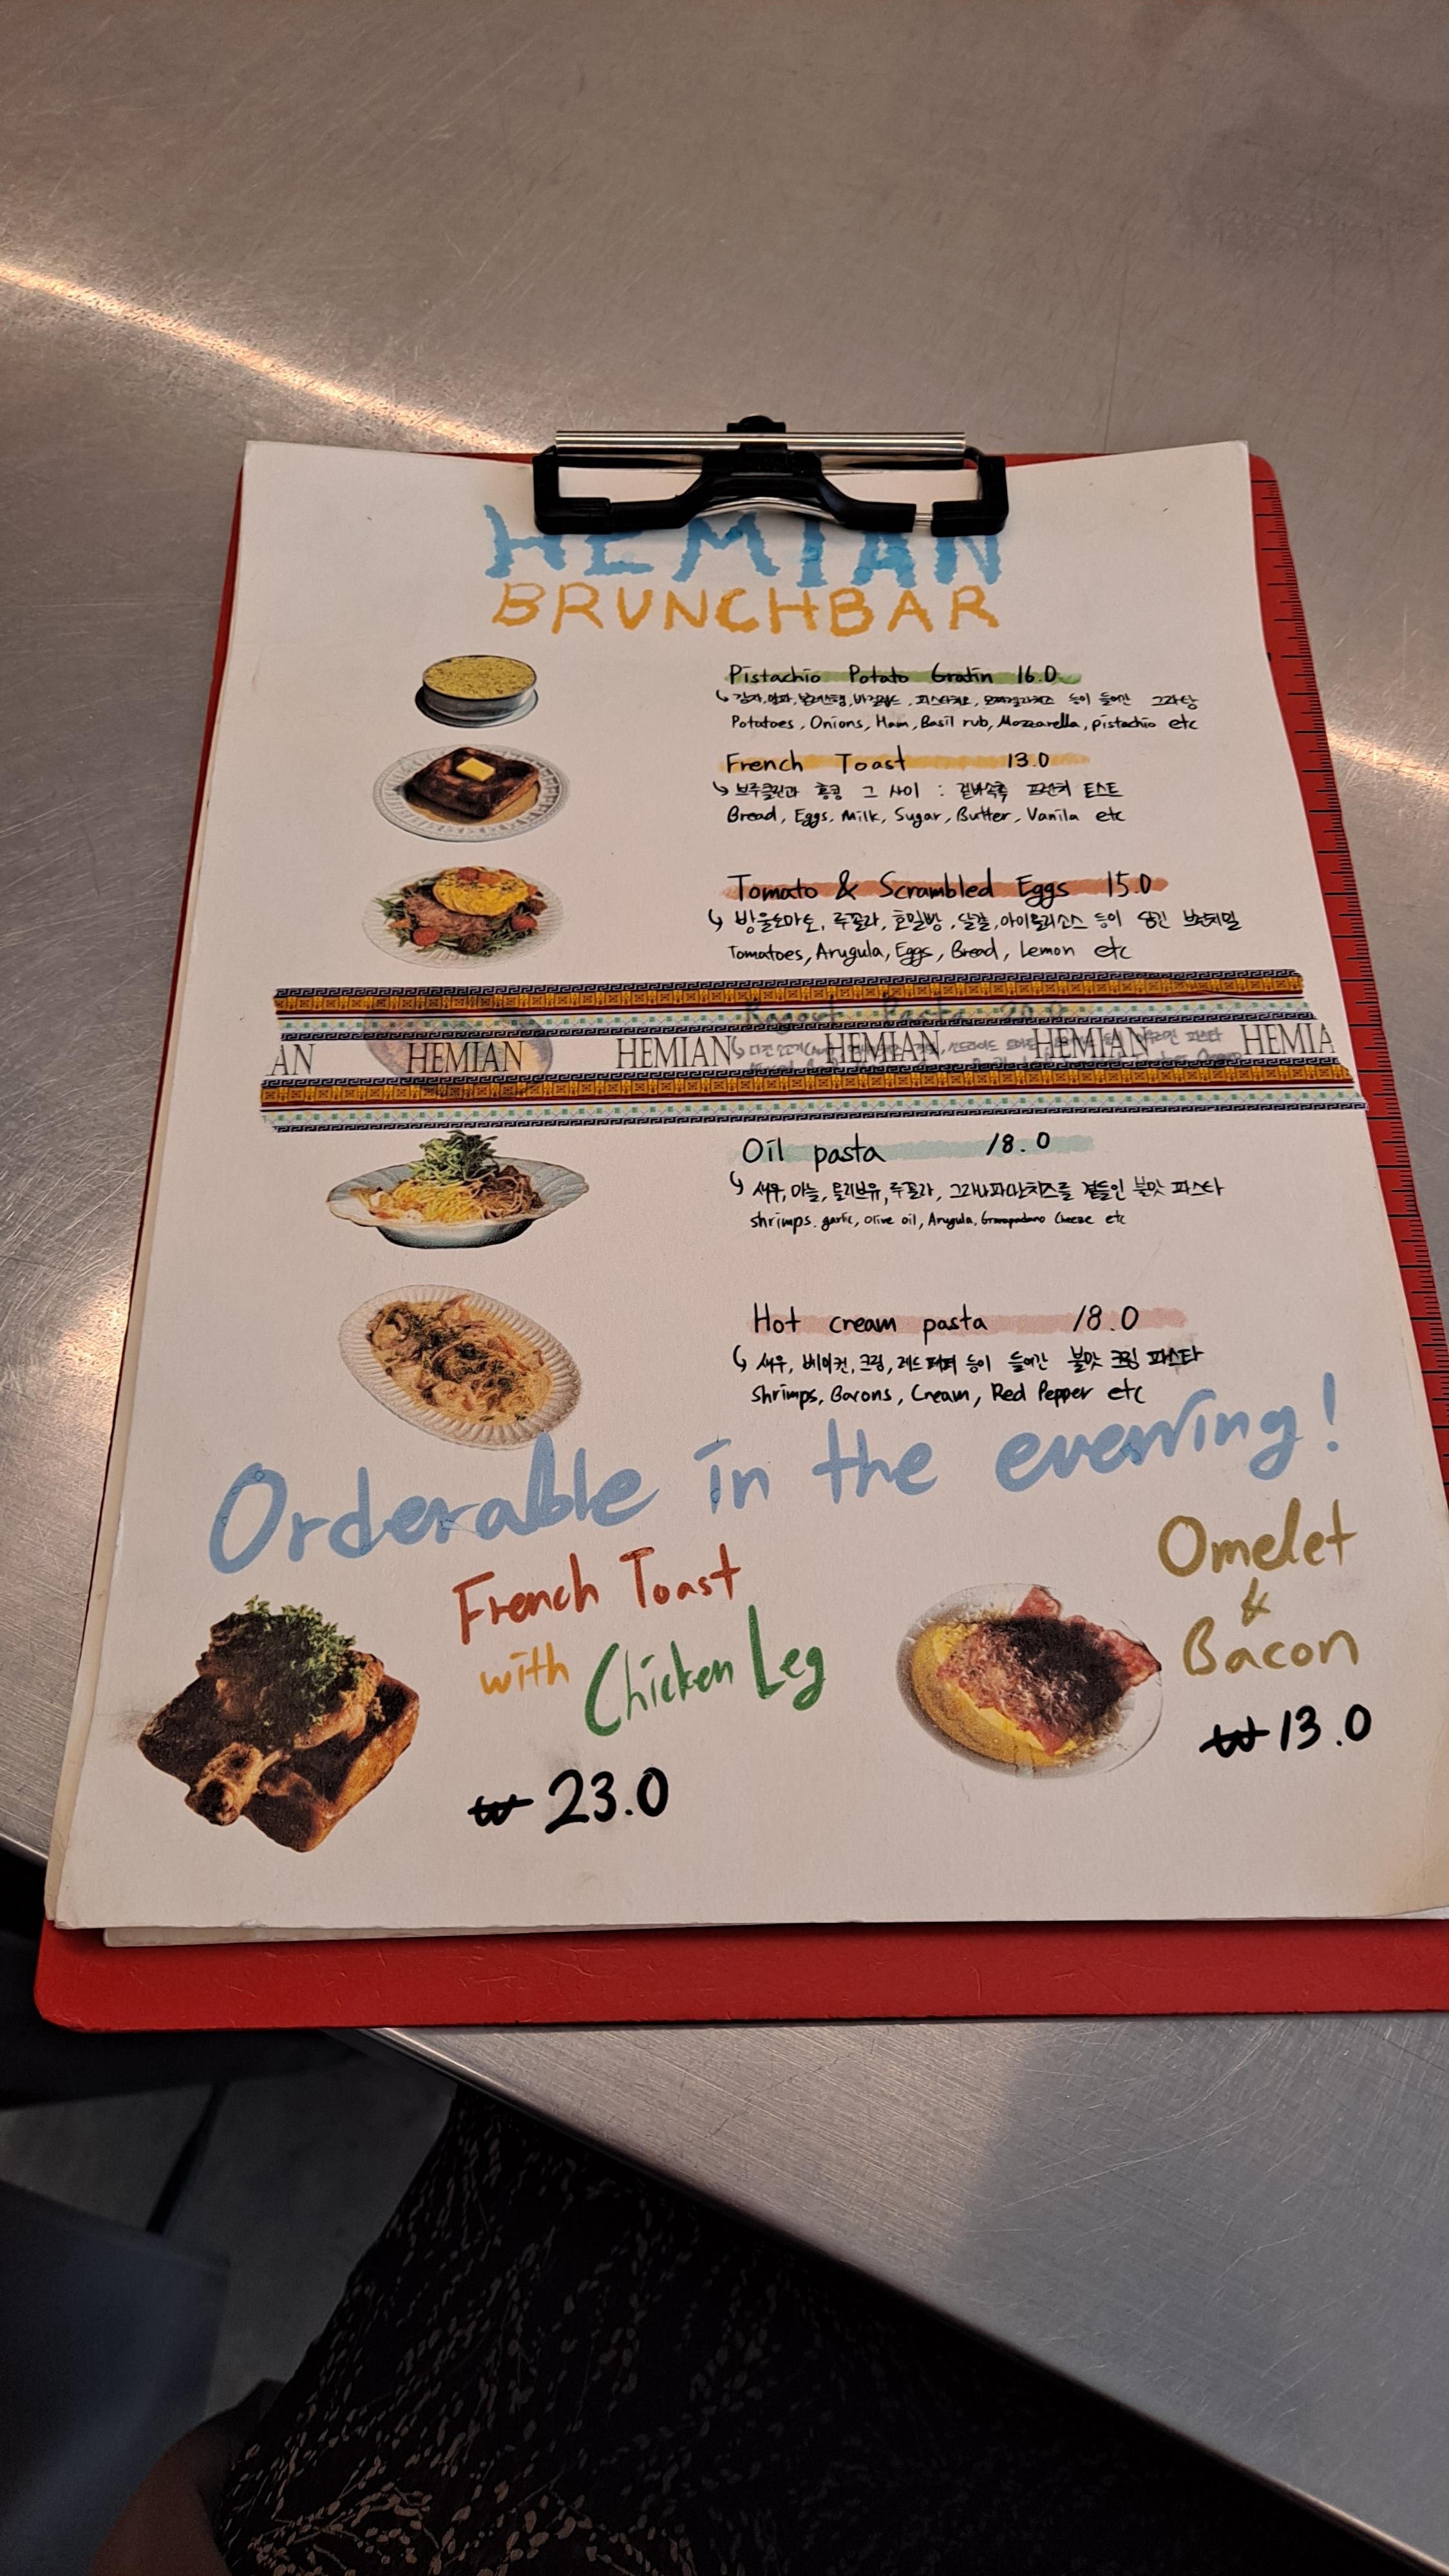 HEMIAN
BRUNCHBAR
Pistachio Potato Gratin 16.0
감자, 양파, 바질럽드, 피스타치오, 모짜렐라치즈 등이 들어간 그라탕
Potatoes, Onions, Ham, Basil rub, Mozzarella, pistachio etc
French Toast 13.0
브루클린과 홍콩 그 사이 : 겉바속촉 프렌치 토스트
Bread, Eggs, Milk, Sugar, Butter, Vanila etc
Tomato & Scrambled Eggs 15.0
방울토마토, 루꼴라, 호밀빵, 달걀, 아이올리소스 등이 담긴 브런치밀
Tomatoes, Arugula, Eggs, Bread, Lemon etc
Pasta 20.0
AN HEMIAN HEMIAN HEMIAN HEMIAN HEMIA
Oil pasta 18.0
새우, 마늘, 올리브유, 루꼴라, 그라나파다노치즈를 곁들인 불맛 파스타
shrimps, garlic, Olive oil, Arugula, Granapadano Cheeze etc
Hot cream pasta 18.0
새우, 베이컨, 크림, 레드페퍼 등이 들어간 불맛 크림 파스타
Shrimps, Bacons, Cream, Red Pepper etc
Orderable in the evening!
French Toast
with Chicken Leg
₩ 23.0
Omelet
&
Bacon
₩ 13.0